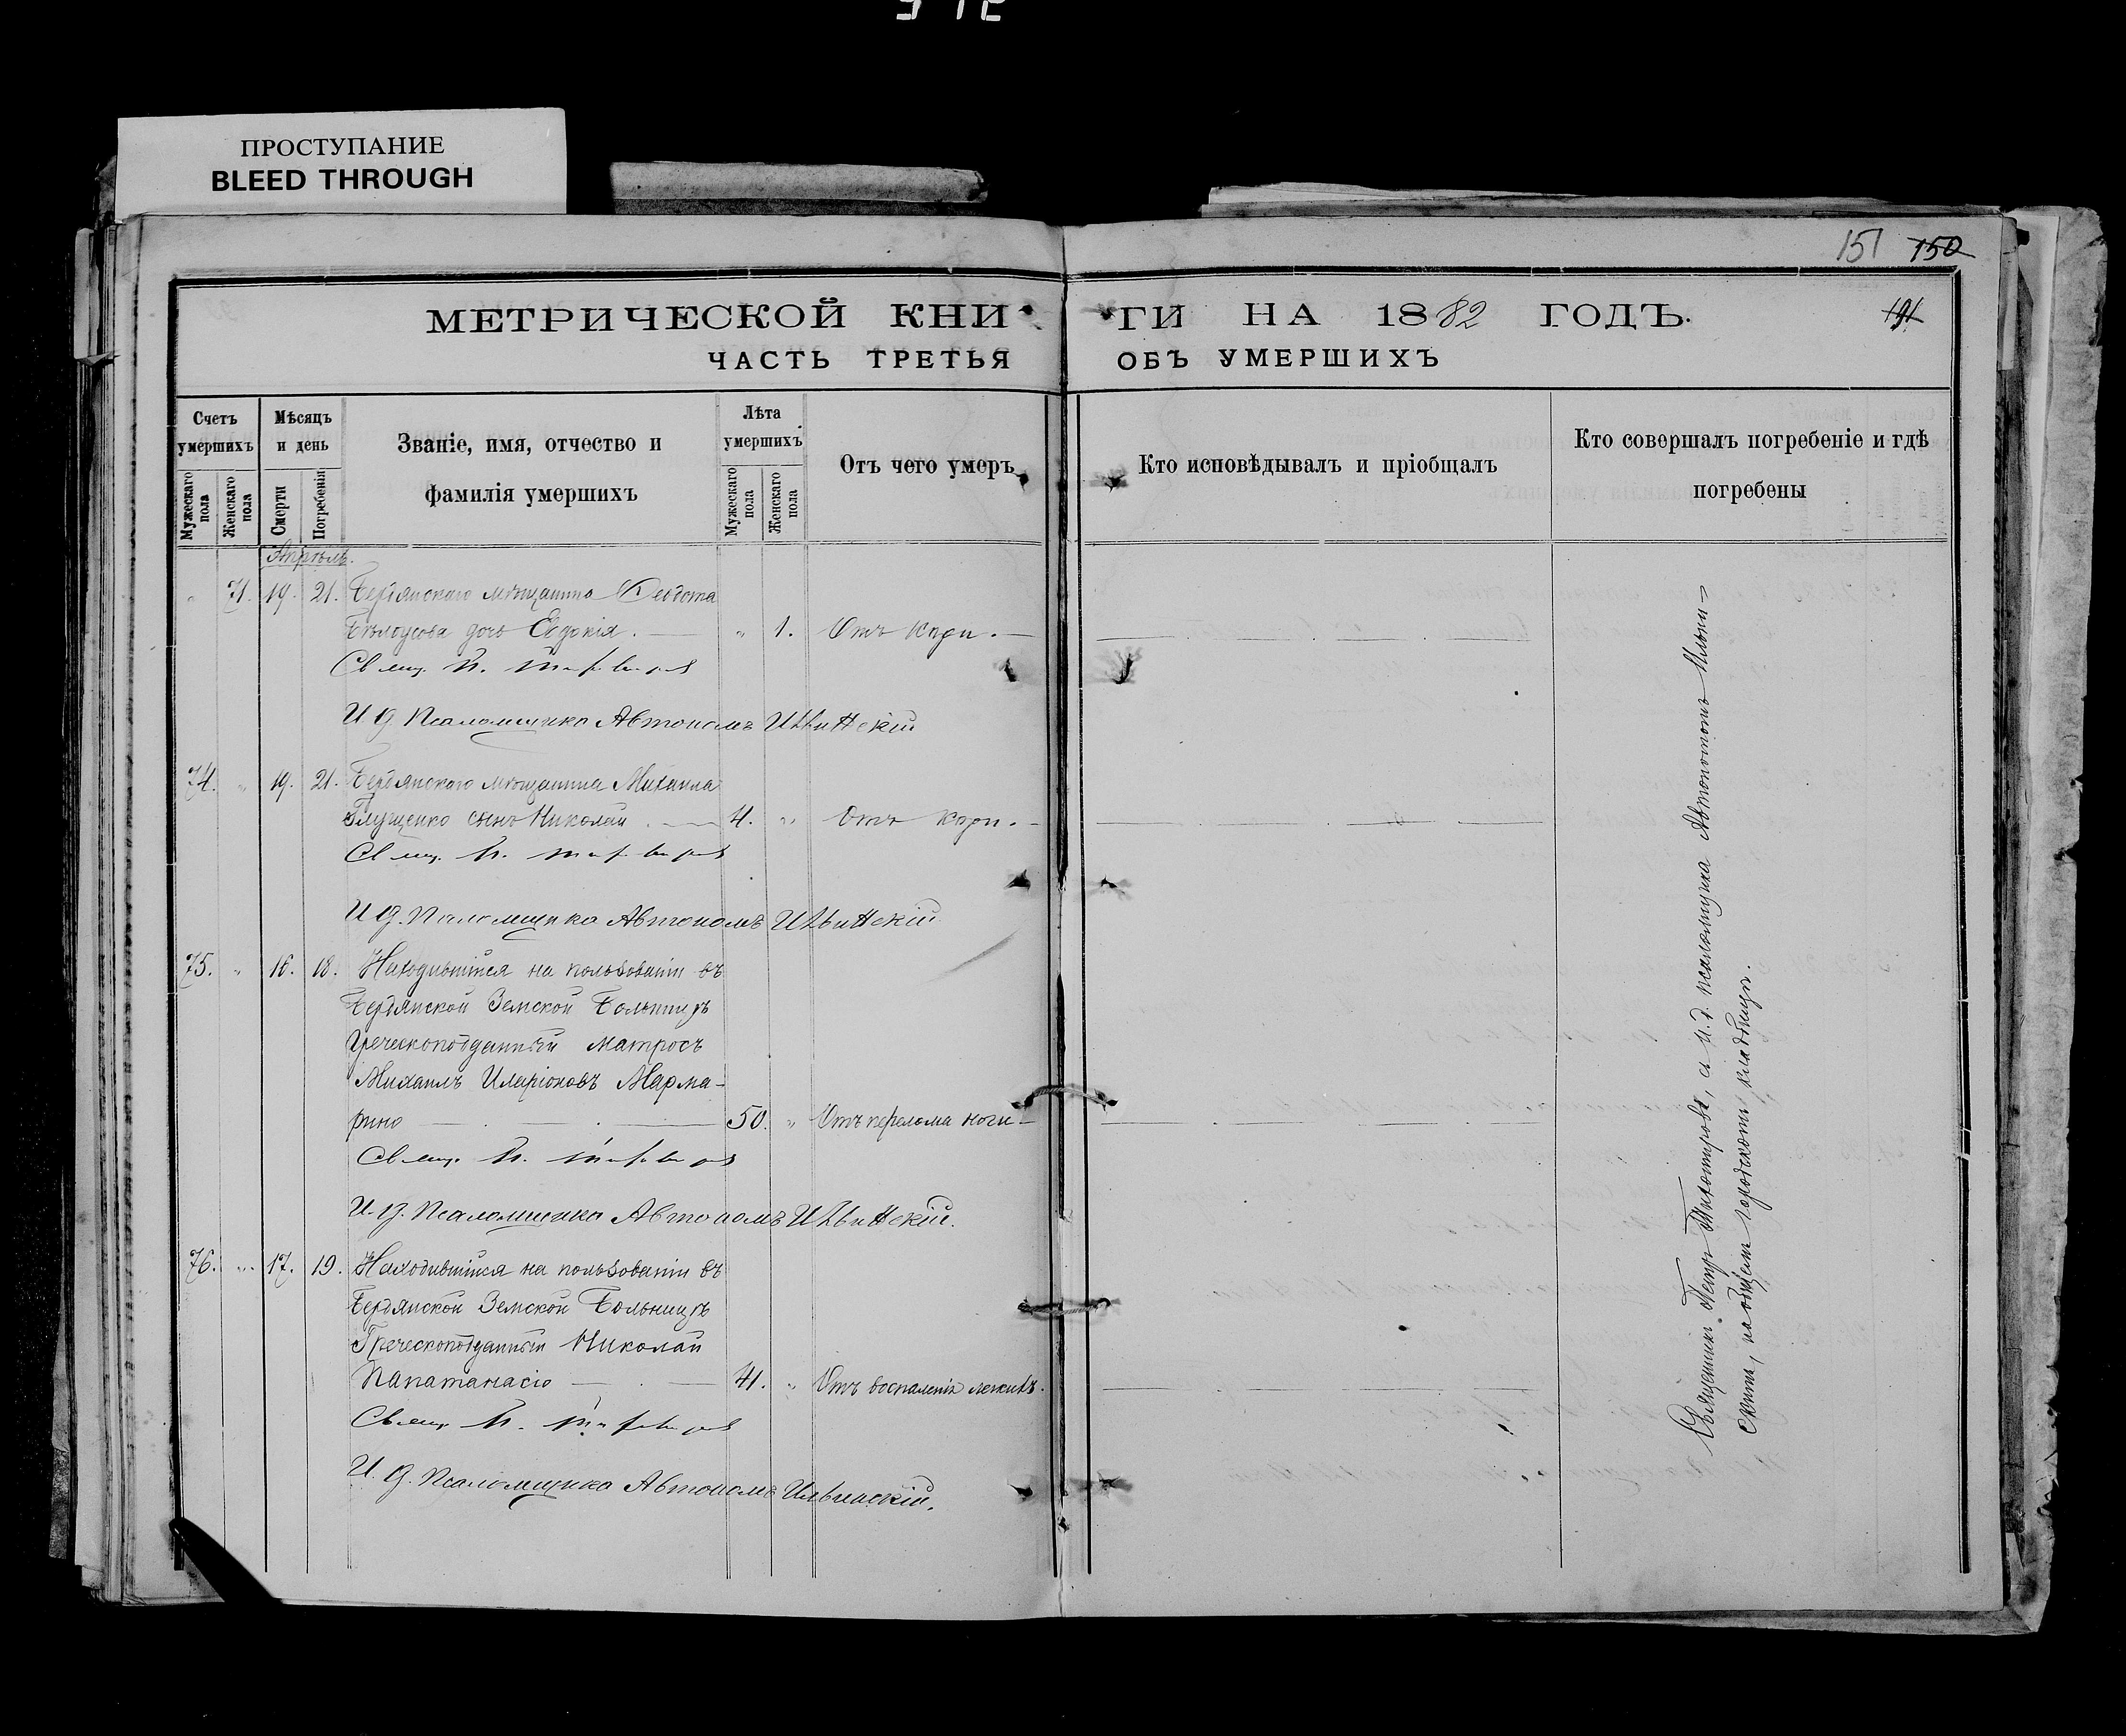 ПРОСТУПАНИЕ
BLEED THROUGH
151 150
МЕТРИЧЕСКОЙ КНИ ГИ НА 1882 ГОДЪ.
191
ЧАСТЬ ТРЕТЬЯ ОБЪ УМЕРШИХЪ
Счетъ умершихъ
Мужескаго пола
Женскаго пола
Мѣсяцъ и день
Смерти
Погребенія
Званіе, имя, отчество и
фамилія умершихъ
Лѣта умершихъ
Мужескаго пола
Женскаго пола
Отъ чего умеръ
Кто исповѣдывалъ и пріобщалъ
Кто совершалъ погребеніе и гдѣ
погребены
Апрѣль.
" 71. 19. 21. Бердянскаго мѣщанина Ѳеодота
Бѣлоусова дочь Евдокія. " 1. Отъ кори.
Свящ. П.
И д Псаломщика Автономъ Ильинскій
74. " 19. 21. Бердянскаго мѣщанина Михаила
Глущенко сынъ Николай. 4. " Отъ кори.
Свящ. П.
И д. Псаломщика Автономъ Ильинскій
75. " 16. 18. Находившійся на пользованіи въ
Бердянской Земской Больницѣ
Греческоподданный матросъ
Михаилъ Иларіоновъ Марма-
рино 50. " Отъ перелома ноги
Свящ. П.
И. д. Псаломщика Автономъ Ильинскій.
76. " 17. 19. Находившійся на пользованіи въ
Бердянской Земской Больницѣ
Греческоподданный Николай
Папатанасіо 41. " Отъ воспаленія легкихъ.
Свящ. П.
И. д. Псаломщика Автономъ Ильинскій.
Священникъ Петръ Тихомировъ, съ и. д. псаломщика Автономомъ Ильин-
скимъ, на общемъ городскомъ кладбищѣ.